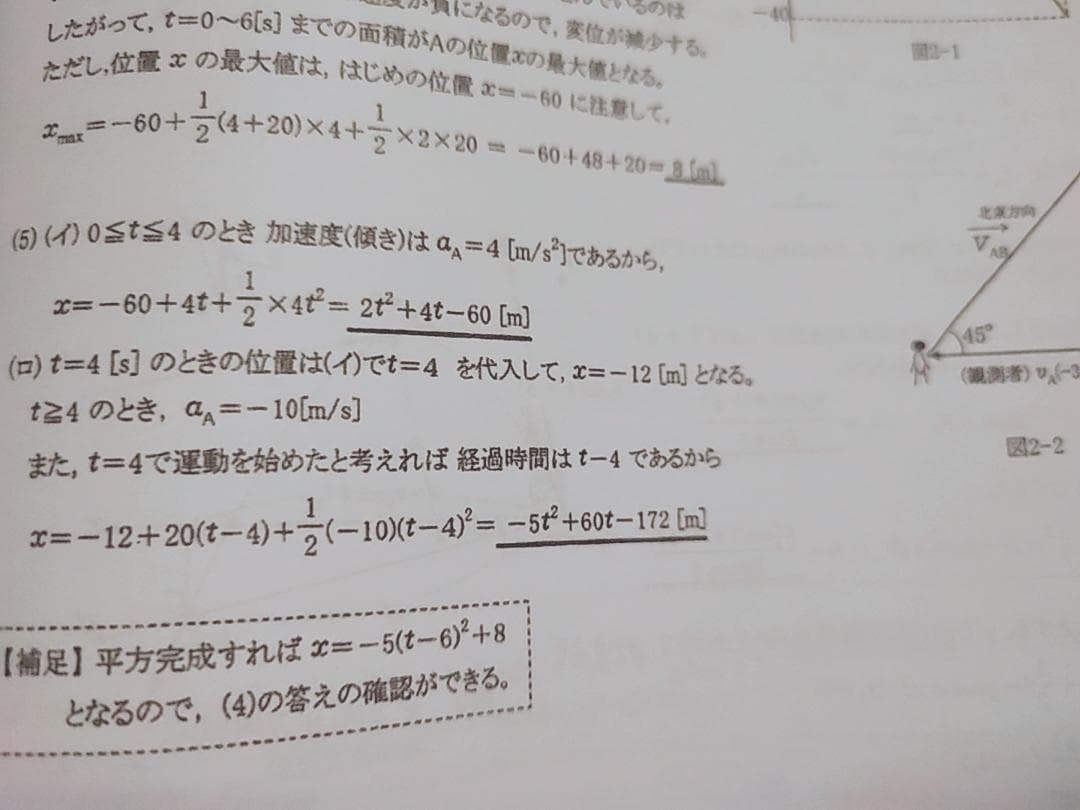 になるので, 変位が減少する。
したがって, t=0～6[s] までの面積がAの位置xの最大値となる。
ただし,位置 x の最大値は, はじめの位置 x=-60 に注意して,
x_max=-60+1/2(4+20)×4+1/2×2×20 = -60+48+20=8[m]
(5) (イ) 0≦t≦4 のとき 加速度(傾き)は a_A=4 [m/s²]であるから,
x=-60+4t+1/2×4t²= 2t²+4t-60 [m]
(ロ) t=4 [s] のときの位置は(イ)でt=4 を代入して, x=-12 [m] となる。
t≧4 のとき, a_A=-10[m/s]
また, t=4で運動を始めたと考えれば 経過時間は t-4 であるから
x=-12+20(t-4)+1/2(-10)(t-4)²= -5t²+60t-172 [m]
【補足】平方完成すれば x=-5(t-6)²+8
となるので, (4)の答えの確認ができる。
-40
図2-1
北東方向
V_AB
45°
(観測者) v_A(-3
図2-2